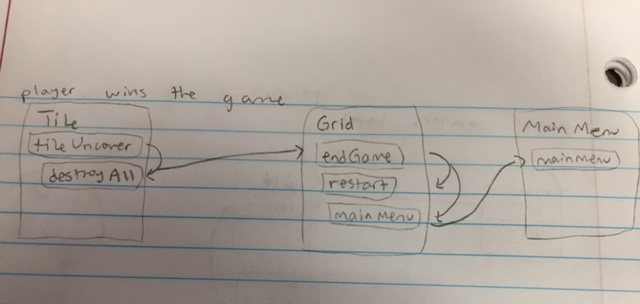 player wins the game
Tile
tileUncover
destroyAll
Grid
endGame
restart
mainMenu
Main Menu
mainmenu